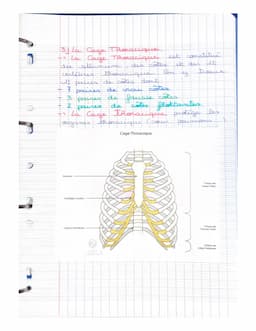 3) la Cage Thoracique
→ la Cage Thoracique est constitué
du sternum, des côtes et des 12
vertèbres thoracique. On y trouve
12 paires de côtes dont :
7 paires de vraies côtes
3 paires de fausse côtes
2 paires de côtes flottantes.
→ la Cage thoracique protège les
organes thoracique (cœur, poumons...)
Cage Thoracique